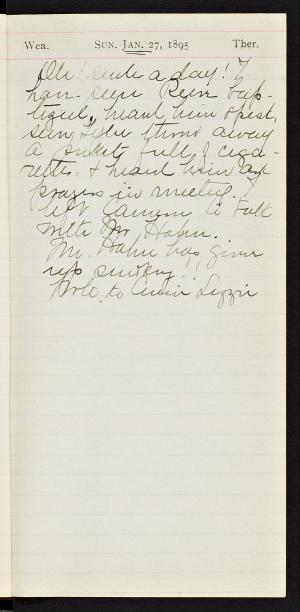 Wea. SUN. JAN. 27, 1895 Ther.
Oh! such a day! I
have seen Reir bap-
tized, heard him speak,
seen him throw away
a pocket full of ciga-
rettes, & heard him ask
prayers in meeting.
left Camera to talk
with Mr. Hahn.
Mr. Hahn has given
up smoking!!
Wrote to Annie Lizzie